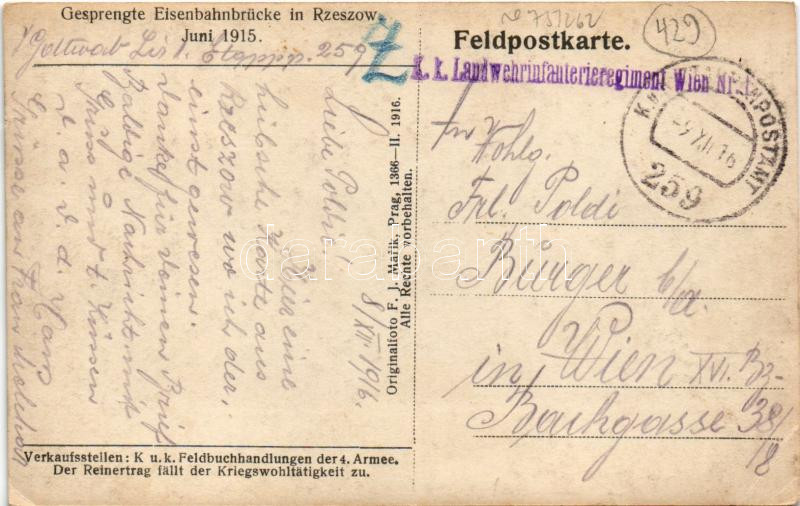 Gesprengte Eisenbahnbrücke in Rzeszow.
Juni 1915.
Etappp. 259
8/XII 1916.
Liebe Poldi!
Hier eine
hübsche Karte aus
Rzeszow wo ich der.
einst gewesen.
Danke für deinen Brief
Baldige Nachricht mit
Gruss und t. Küssen
Grüsse an Frau
Originalfoto F. J. Mařik, Prag, 1366—II. 1916.
Alle Rechte vorbehalten.
Verkaufsstellen: K u. k. Feldbuchhandlungen der 4. Armee.
Der Reinertrag fällt der Kriegswohltätigkeit zu.
No 757262
429
Feldpostkarte.
K. k. Landwehrinfanterieregiment Wien Nr. 1
-9 XII 16
259
An Wohlg.
Frl. Poldi
Bürger
in Wien XVI. Bz-
Bachgasse 38/
18
darabanth